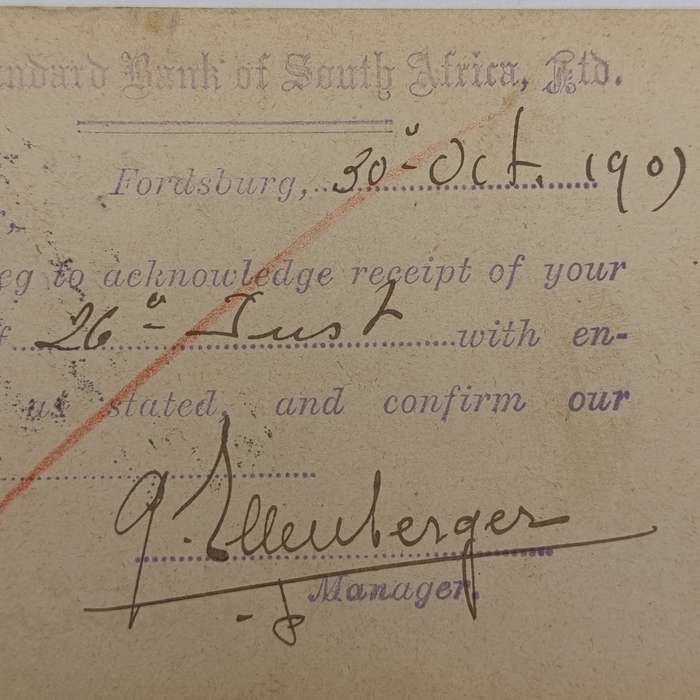 andard Bank of South Africa, Ltd.
Fordsburg, 30" Oct. 190)
eg to acknowledge receipt of your
f 26" Inst with en-
us stated, and confirm our
G. Ellenberger
Manager.